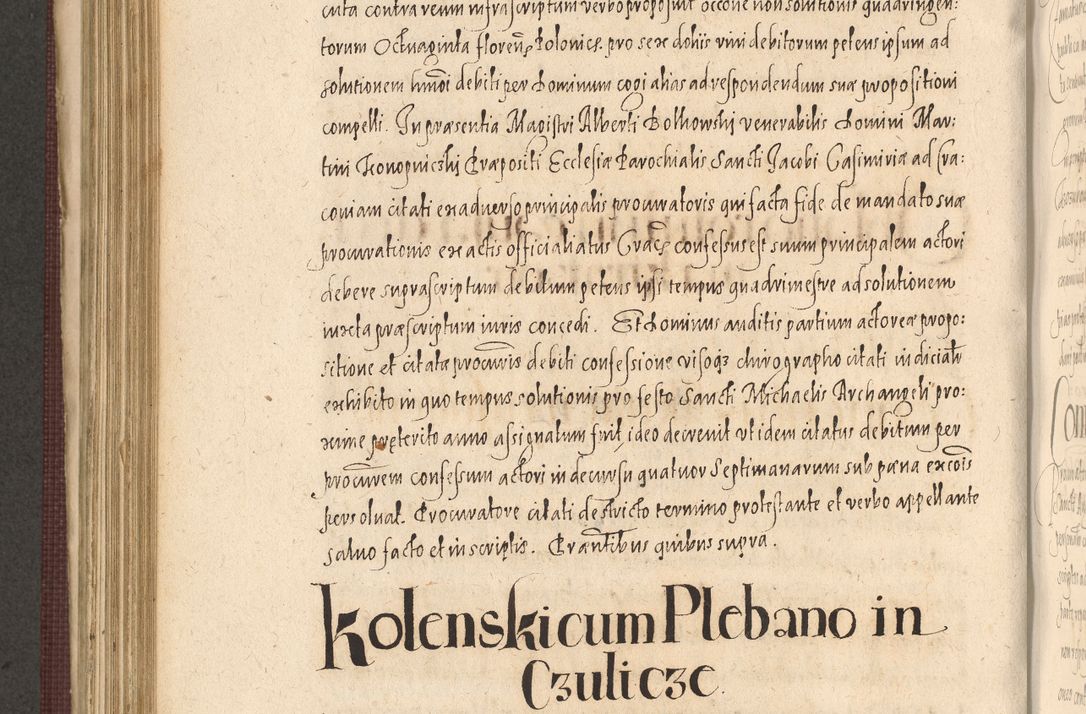 citata contra reum infrascriptum verbo proposuit occõe non solutionis quadringen:
torum Octuaginta florenȩ Polonicȩ pro sex doliis vini debitorum petens ipsum ad
solutionem hmõi debiti per Dominum cogi alias ad respondendum suæ propositioni
compelli. In præsentia Magistri Alberti Bolkowsky venerabilis Domini Mar-
tini Konopniczki Præpositi Ecclesiæ Parochialis Sancti Jacobi Casimiriæ ad Cra:
coviam citati ex adverso principalis procuratoris qui facta fide de mandato suæ
procurationis ex actis officialiatus Cracȩ confessus est suum principalem actori
debere suprascriptum debitum petens ipsi tempus quadrimestre ad solutionem
iuxta præscriptum iuris concedi. Et Dominus auditis partium actoreæ propo:
sitione et citatæ procuris debiti confessione visoqȝ chirographo citati iudicialr
exhibito in quo tempus solutionis pro festo Sancti Michaelis Archangeli pro:
xime prȩterito anno assignatum fuit ideo decrevit ut idem citatus debitum per
procurem confessum actori in decursu quatuor Septimanarum sub pæna excõis
persolvat. Procuratore citati de stricto termino protestante et verbo appellante
salvo facto et in scriptis. Præntibus quibus supra.
Kolenskicum Plebano in
Czulicze